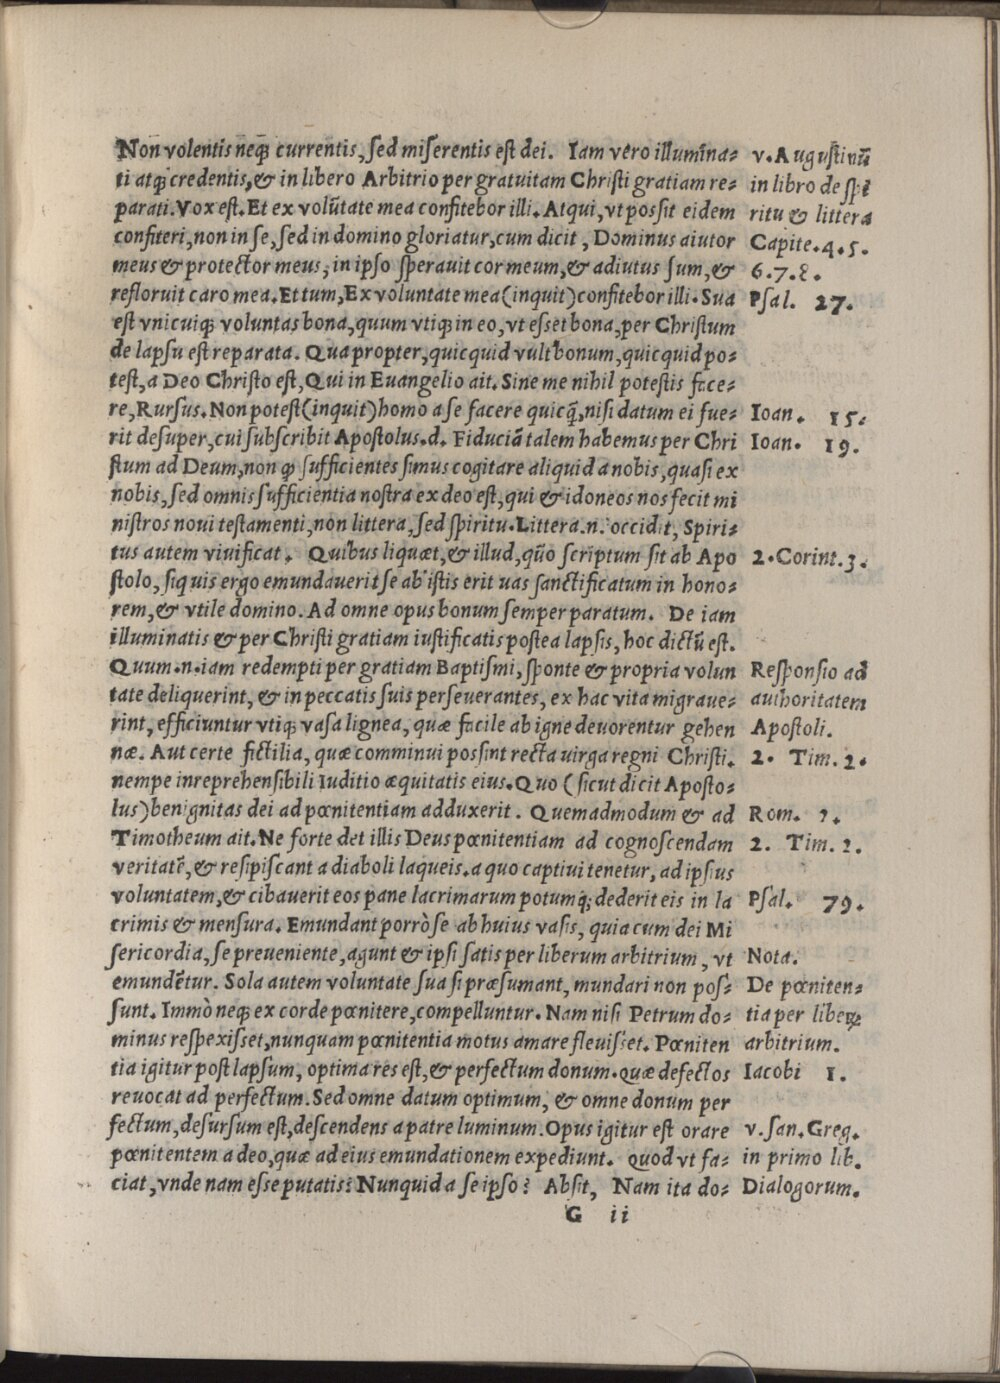 Non volentis neq; currentis, ſed miſerentis eſt dei. Iam vero illumina-
ti atq; credentis, & in libero Arbitrio per gratuitam Chriſti gratiam re-
parati. Vox eſt. Et ex volūtate mea confitebor illi. Atqui, vt poſsit eidem
confiteri, non in ſe, ſed in domino gloriatur, cum dicit, Dominus aiutor
meus & protector meus, in ipſo ſperauit cor meum, & adiutus ſum, &
refloruit caro mea. Et tum, Ex voluntate mea (inquit) confitebor illi. Sua
eſt vnicuiq; voluntas bona, quum vtiq; in eo, vt eſſet bona, per Chriſtum
de lapſu eſt reparata. Quapropter, quicquid vult bonum, quicquid po-
teſt, a Deo Chriſto eſt, Qui in Euangelio ait. Sine me nihil poteſtis face-
re, Rurſus. Non poteſt (inquit) homo a ſe facere quicq̃, niſi datum ei fue-
rit deſuper, cui ſubſcribit Apoſtolus. d. Fiduciā talem habemus per Chri
ſtum ad Deum, non ꝙ ſufficientes ſimus cogitare aliquid a nobis, quaſi ex
nobis, ſed omnis ſufficientia noſtra ex deo eſt, qui & idoneos nos fecit mi
niſtros noui teſtamenti, non littera, ſed ſpiritu. Littera .n. occidit, Spiri-
tus autem viuificat. Quibus liquæt, & illud, qūo ſcriptum ſit ab Apo
ſtolo, ſi quis ergo emundauerit ſe ab iſtis erit uas ſanctificatum in hono-
rem, & vtile domino. Ad omne opus bonum ſemper paratum. De iam
illuminatis & per Chriſti gratiam iuſtificatis poſtea lapſis, hoc dictū eſt.
Quum .n. iam redempti per gratiam Baptiſmi, ſponte & propria volun
tate deliquerint, & in peccatis ſuis perſeuerantes, ex hac vita migraue-
rint, efficiuntur vtiq; vaſa lignea, quæ facile ab igne deuorentur gehen
næ. Aut certe fictilia, quæ comminui poſsint recta uirga regni Chriſti.
nempe inreprehenſibili Iuditio æquitatis eius. Quo (ſicut dicit Apoſto-
lus) benignitas dei ad pœnitentiam adduxerit. Quemadmodum & ad
Timotheum ait. Ne forte det illis Deus pœnitentiam ad cognoſcendam
veritatē, & reſipiſcant a diaboli laqueis. a quo captiui tenetur, ad ipſius
voluntatem, & cibauerit eos pane lacrimarum potumq; dederit eis in la
crimis & menſura. Emundant porrò ſe ab huius vaſis, quia cum dei Mi
ſericordia, ſe preueniente, agunt & ipſi ſatis per liberum arbitrium, vt
emundētur. Sola autem voluntate ſua ſi præſumant, mundari non poſ-
ſunt. Immò neq; ex corde pœnitere, compelluntur. Nam niſi Petrum do-
minus reſpexiſſet, nunquam pœnitentia motus amare fleuiſſet. Pœniten
tia igitur poſt lapſum, optima res eſt, & perfectum donum. quæ defectos
reuocat ad perfectum. Sed omne datum optimum, & omne donum per
fectum, deſurſum eſt, deſcendens a patre luminum. Opus igitur eſt orare
pœnitentem a deo, quæ ad eius emundationem expediunt. quod vt fa-
ciat, vnde nam eſſe putatis? Nunquid a ſe ipſo? Abſit, Nam ita do-
G ii
v. Auguſtinū
in libro de ſpi
ritu & littera
Capite. 4. 5.
6. 7. 8.
Pſal. 27.
Ioan. 15.
Ioan. 19.
2. Corint. 3.
Reſponſio ad
authoritatem
Apoſtoli.
2. Tim. 2.
Rom. 2.
2. Tim. 2.
Pſal. 79.
Nota.
De pœniten-
tia per liberꝝ
arbitrium.
Iacobi 1.
v. ſan. Greg.
in primo lib.
Dialogorum.